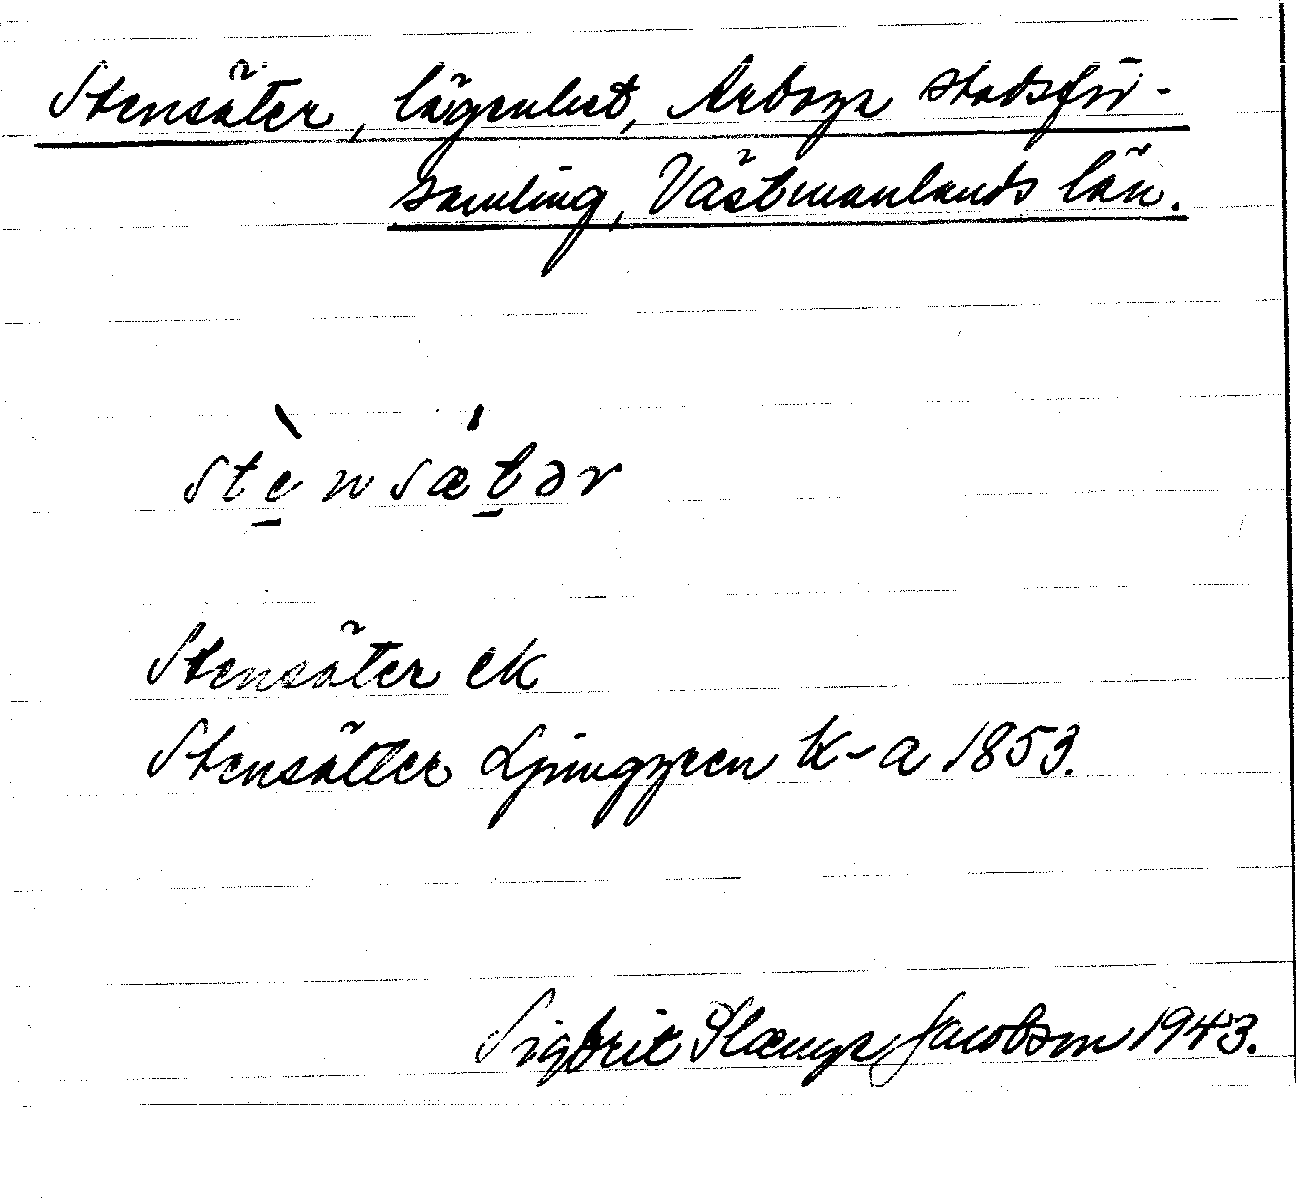 Stensäter, lägenhet, Arboga stadsför-
samling, Västmanlands län.
stè̱nsǽṯər
Stensäter ek
Stensätter Ljunggren k-a 1853.
Sigbrit Plænge Jacobson 1943.